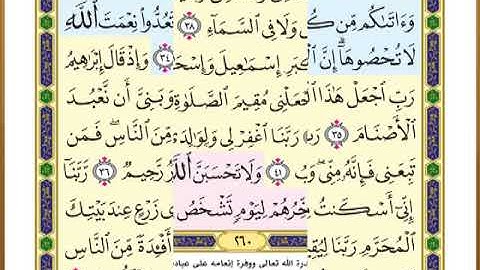 وَءَاتَىٰكُم مِّن كُ وَلَا فِى ٱلسَّمَآءِ ٣٨ تَعُدُّوا۟ نِعْمَتَ ٱللَّهِ
لَا تُحْصُوهَآ إِنَّ ٱلْكِبَرِ إِسْمَٰعِيلَ وَإِسْحَٰ ٣٤ وَإِذْ قَالَ إِبْرَٰهِيمُ
رَبِّ ٱجْعَلْ هَٰذَا ٱجْعَلْنِى مُقِيمَ ٱلصَّلَوٰةِ وَبَنِىَّ أَن نَّعْبُدَ
ٱلْأَصْنَامَ ٣٥ رَبِّ رَبَّنَا ٱغْفِرْ لِى وَلِوَٰلِدَ مِنَ ٱلنَّاسِ فَمَن
تَبِعَنِى فَإِنَّهُۥ مِنِّى وَ ٤١ وَلَا تَحْسَبَنَّ ٱللَّهَ رَّحِيمٌ ٣٦ رَّبَّنَآ
إِنِّىٓ أَسْكَنتُ خِّرُهُمْ لِيَوْمٍ تَشْخَصُ ى زَرْعٍ عِندَ بَيْتِكَ
ٱلْمُحَرَّمِ رَبَّنَا لِيُقِي ٢٦٠ أَفْـِٔدَةً مِّنَ ٱلنَّاسِ
درة الله تعالى ووفرة إنعامه على عباد